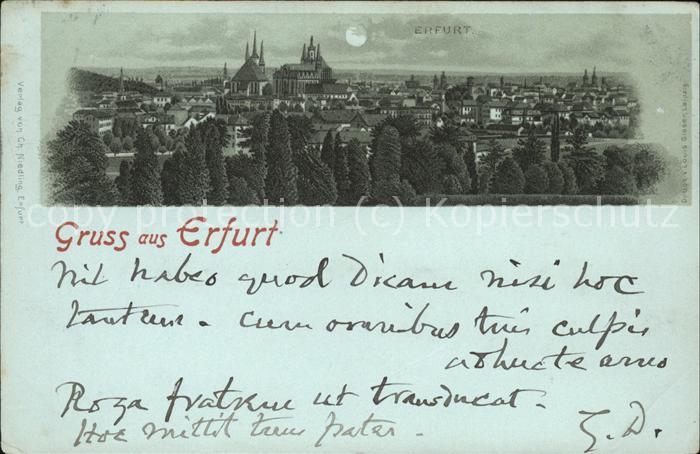 ERFURT.
Verlag von Ch. Niedling, Erfurt
copy protection (c) Kopierschutz
Gruss aus Erfurt
Nil habeo quod Dicam nisi hoc
tantum. cum omnibus tuis culpis
adhuc te amo
Roga fratrem ut transducat.
Hoc mittit tuus pater.
G. D.